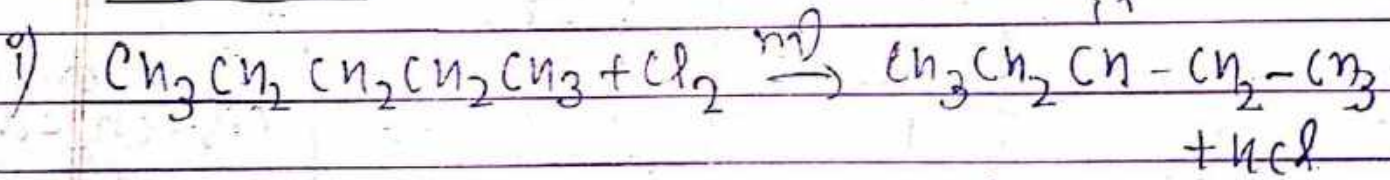 i) CH₃CH₂CH₂CH₂CH₃ + Cl₂ → CH₃CH₂CH-CH₂-CH₃
+ HCl